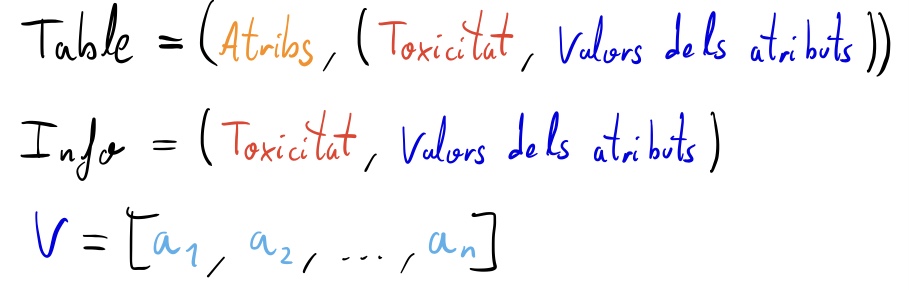 Table = (Atribs, (Toxicitat, Valors dels atributs))
Info = (Toxicitat, Valors dels atributs)
V = [a₁, a₂, ..., aₙ]